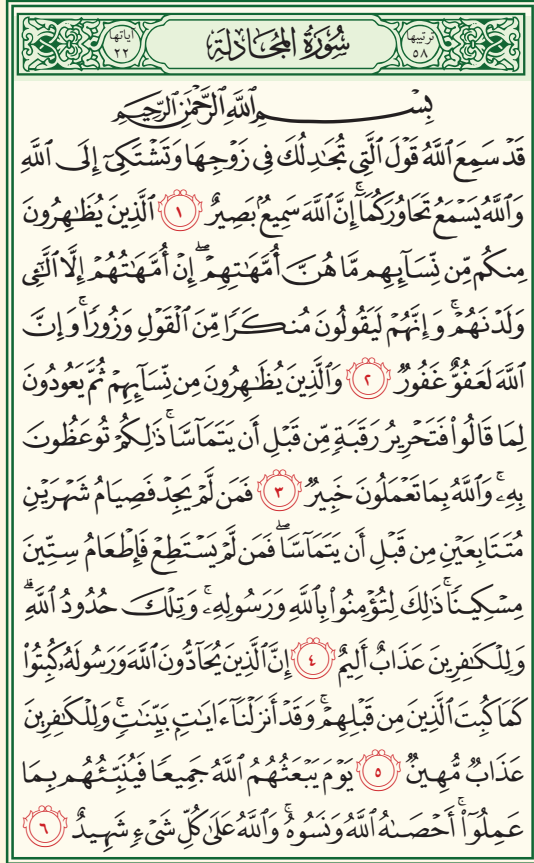 ترتيبها ٥٨ سُورَةُ المُجَادلَةِ آياتها ٢٢
بِسْمِ ٱللَّهِ ٱلرَّحْمَٰنِ ٱلرَّحِيمِ
قَدْ سَمِعَ ٱللَّهُ قَوْلَ ٱلَّتِي تُجَٰدِلُكَ فِي زَوْجِهَا وَتَشْتَكِيٓ إِلَى ٱللَّهِ
وَٱللَّهُ يَسْمَعُ تَحَاوُرَكُمَآۚ إِنَّ ٱللَّهَ سَمِيعُۢ بَصِيرٌ ١ ٱلَّذِينَ يُظَٰهِرُونَ
مِنكُم مِّن نِّسَآئِهِم مَّا هُنَّ أُمَّهَٰتِهِمْۖ إِنْ أُمَّهَٰتُهُمْ إِلَّا ٱلَّٰٓـِٔي
وَلَدْنَهُمْۚ وَإِنَّهُمْ لَيَقُولُونَ مُنكَرًا مِّنَ ٱلْقَوْلِ وَزُورًاۚ وَإِنَّ
ٱللَّهَ لَعَفُوٌّ غَفُورٌ ٢ وَٱلَّذِينَ يُظَٰهِرُونَ مِن نِّسَآئِهِمْ ثُمَّ يَعُودُونَ
لِمَا قَالُوا۟ فَتَحْرِيرُ رَقَبَةٍ مِّن قَبْلِ أَن يَتَمَآسَّاۚ ذَٰلِكُمْ تُوعَظُونَ
بِهِۦۚ وَٱللَّهُ بِمَا تَعْمَلُونَ خَبِيرٌ ٣ فَمَن لَّمْ يَجِدْ فَصِيَامُ شَهْرَيْنِ
مُتَتَابِعَيْنِ مِن قَبْلِ أَن يَتَمَآسَّاۖ فَمَن لَّمْ يَسْتَطِعْ فَإِطْعَامُ سِتِّينَ
مِسْكِينًاۚ ذَٰلِكَ لِتُؤْمِنُوا۟ بِٱللَّهِ وَرَسُولِهِۦۚ وَتِلْكَ حُدُودُ ٱللَّهِۗ
وَلِلْكَٰفِرِينَ عَذَابٌ أَلِيمٌ ٤ إِنَّ ٱلَّذِينَ يُحَآدُّونَ ٱللَّهَ وَرَسُولَهُۥ كُبِتُوا۟
كَمَا كُبِتَ ٱلَّذِينَ مِن قَبْلِهِمْۚ وَقَدْ أَنزَلْنَآ ءَايَٰتِۭ بَيِّنَٰتٍۚ وَلِلْكَٰفِرِينَ
عَذَابٌ مُّهِينٌ ٥ يَوْمَ يَبْعَثُهُمُ ٱللَّهُ جَمِيعًا فَيُنَبِّئُهُم بِمَا
عَمِلُوٓا۟ۚ أَحْصَىٰهُ ٱللَّهُ وَنَسُوهُۚ وَٱللَّهُ عَلَىٰ كُلِّ شَيْءٍ شَهِيدٌ ٦